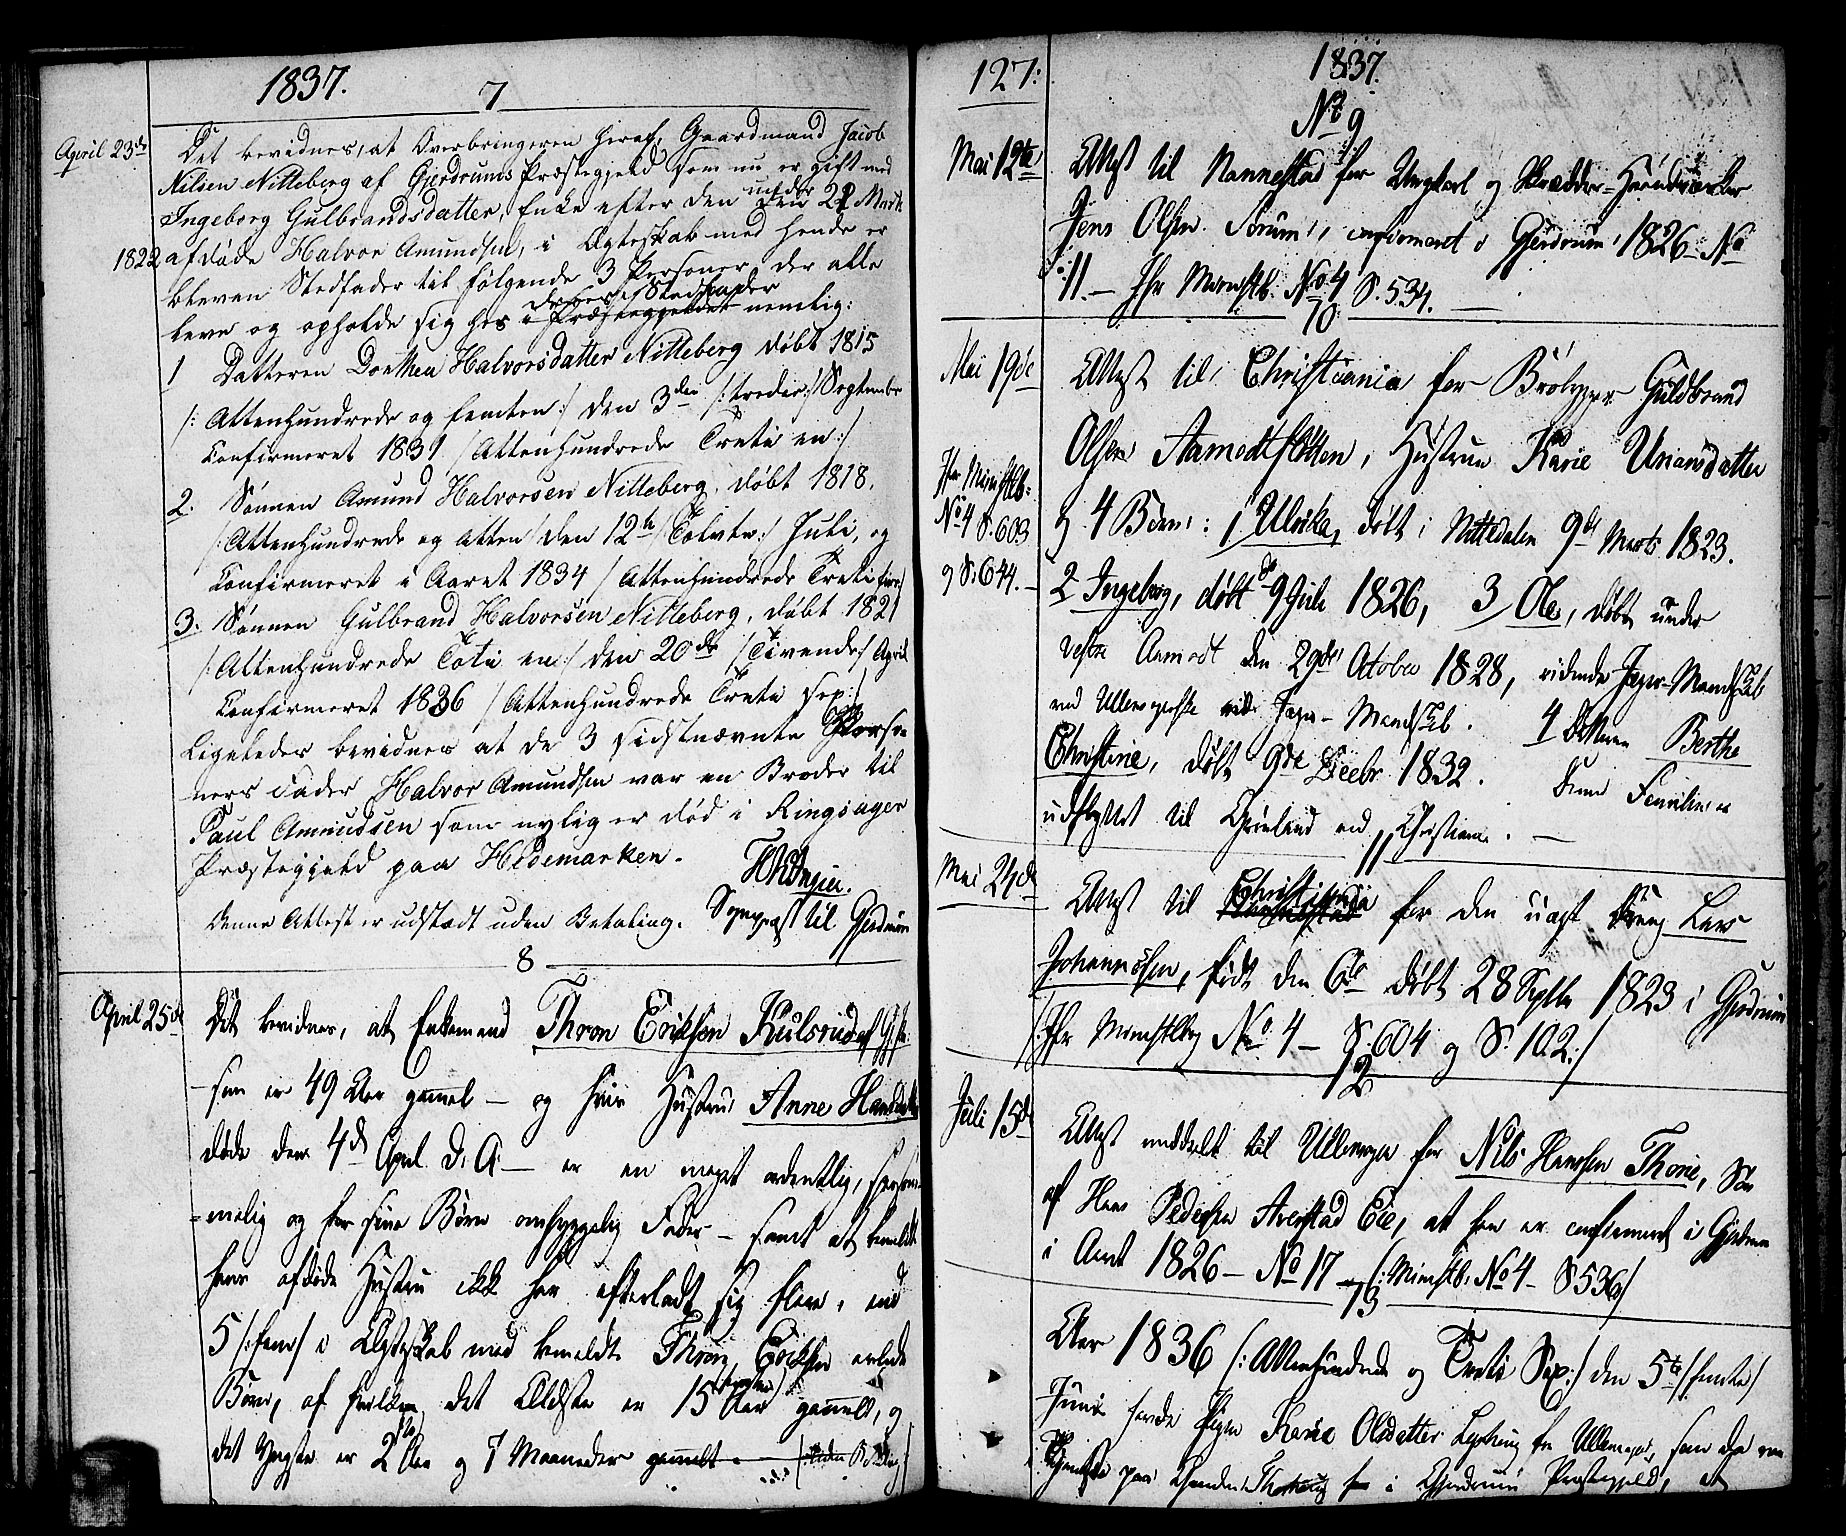 1837.
7
April 23de
Det bevidnes, at Overbringeren heraf, Gaardmand Jacob
Nilsen Nitteberg af Gjerdrums Præstegjeld som nu er gift med
Ingeborg Gulbrandsdatter, Enke efter den under 22 Marts
1822 afdøde Halvor Amundsen, i Ægteskab med hende er
bleven Stedfader til følgende 3 Personer, der alle
deres Stedfader
leve og opholde sig hos i Præstegjeldet nemlig:
1 Datteren Dorthea Halvorsdatter Nitteberg døbt 1815
/: Attenhundrede og femten :/ den 3die /: tredie :/ September
Confirmeret 1831 / Attenhundrede Treti en :/
2. Sønnen Amund Halvorsen Nitteberg, døbt 1818.
/: Attenhundrede og atten / den 12te / Tolvte :/ Juli, og
Confirmeret i Aaret 1834 / Attenhundrede Treti fire /
3. Sønnen Gulbrand Halvorsen Nitteberg, døbt 1821
/: Attenhundrede Toti en :/ den 20de / Tivende / April
Confirmeret 1836 / Attenhundrede Treti sex :/
Ligeledes bevidnes at de 3 sidstnævnte Perso-
ners Fader Halvor Amundsen var en Broder til
Paul Amundsen som nylig er død i Ringsager
Præstegjeld paa Hedemarken.
Sognepræst til Gjerdrum
Denne Attest er udstædt uden Betaling.
8
April 25de
Det bevidnes, at Enkemand Thron Eriksen Kulsrud af Gj:
som er 49 Aar gammel – og hvis Hustru Anne Hansdatter
døde den 4de April d. A. – er en meget ordentlig,
melig og for sine Børn omhyggelig Fader – samt at bemeldte
hans afdøde Hustru ikke har efterladt sig flere, end
5 /: fem :/ i Ægteskab med bemeldte Thron Eriksen avlede
Børn, af hvilke det Ældste er 15 /femten/ Aar gammelt, og
det Yngste er 2 Aar og 7 Maaneder gammelt. –
127:
1837.
No 9
Mai 12te
Attest til Nannestad for Ungkarl og Skrædder-Haandværker
Jens Olsen Sørum, confirmeret i Gjerdrum 1826 No
11. – Jfr Ministb. No 4 S. 534.
10
Mai 19de
Attest til Christiania for Brolægger Guldbrand
Olsen Aamodtflatten, Hustrue Karie Uriansdatter
Jfr Ministb:
No 4 S. 603
og S: 644. –
og 4 Børn: 1/ Ulrika, døbt i Nittedalen 9de Marts 1823.
2 Ingeborg, døbt 9de Juli 1826, 3/ Ole, døbt under
Vestre Aamodt den 29de October 1828, ridende Jæger-Mandskab
ved Ullensagerske rid: Jæger-Mandskab. 4 Datteren Berthe
Christine, døbt 9de Decbr 1832. Denne Familie er
udflyttet til Grønland ved Christiania. –
11
Mai 24de
Attest til Christiania for den ugift Dreng Lars
Johannessen, født den 6te døbt 28 Septbr 1823 i Gjerdrum
/: Jfr Ministbog No 4 – S. 604 og S. 102 :/
12
Juli 15de
Attest meddelt til Ullensager for Nils Hansen Thorie, Søn
af Hans Pedersen Averstad Eie, at han er confirmeret i Gjerdrum
i Aaret 1826 – No 17 – /: Ministb: No 4 – S 536 /
13
Aar 1836 /: Attenhundrede og Treti Sex :/ den 5te / femte /
Junii havde Pigen Karie Olsdatter fra Ullensager, som da var
Tjeneste paa i Gjerdrum Præstegjeld, at